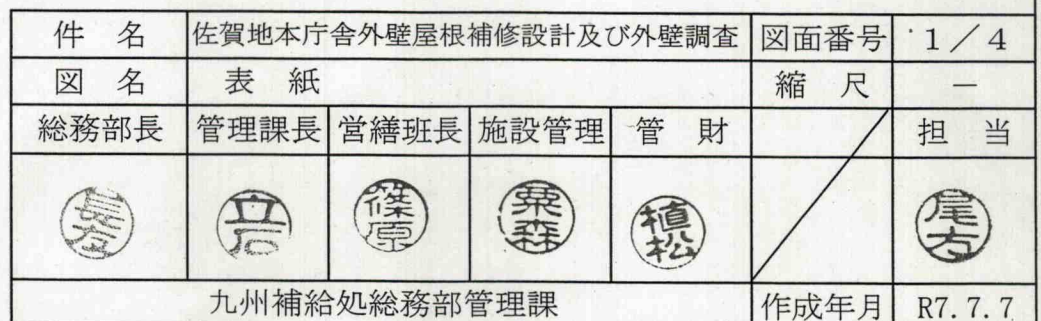 件　名 佐賀地本庁舎外壁屋根補修設計及び外壁調査 図面番号 1／4
図　名 表　紙 縮　尺 －
総務部長 管理課長 営繕班長 施設管理 管　財 担　当
立石 篠原 粟森 植松
九州補給処総務部管理課 作成年月 R7.7.7